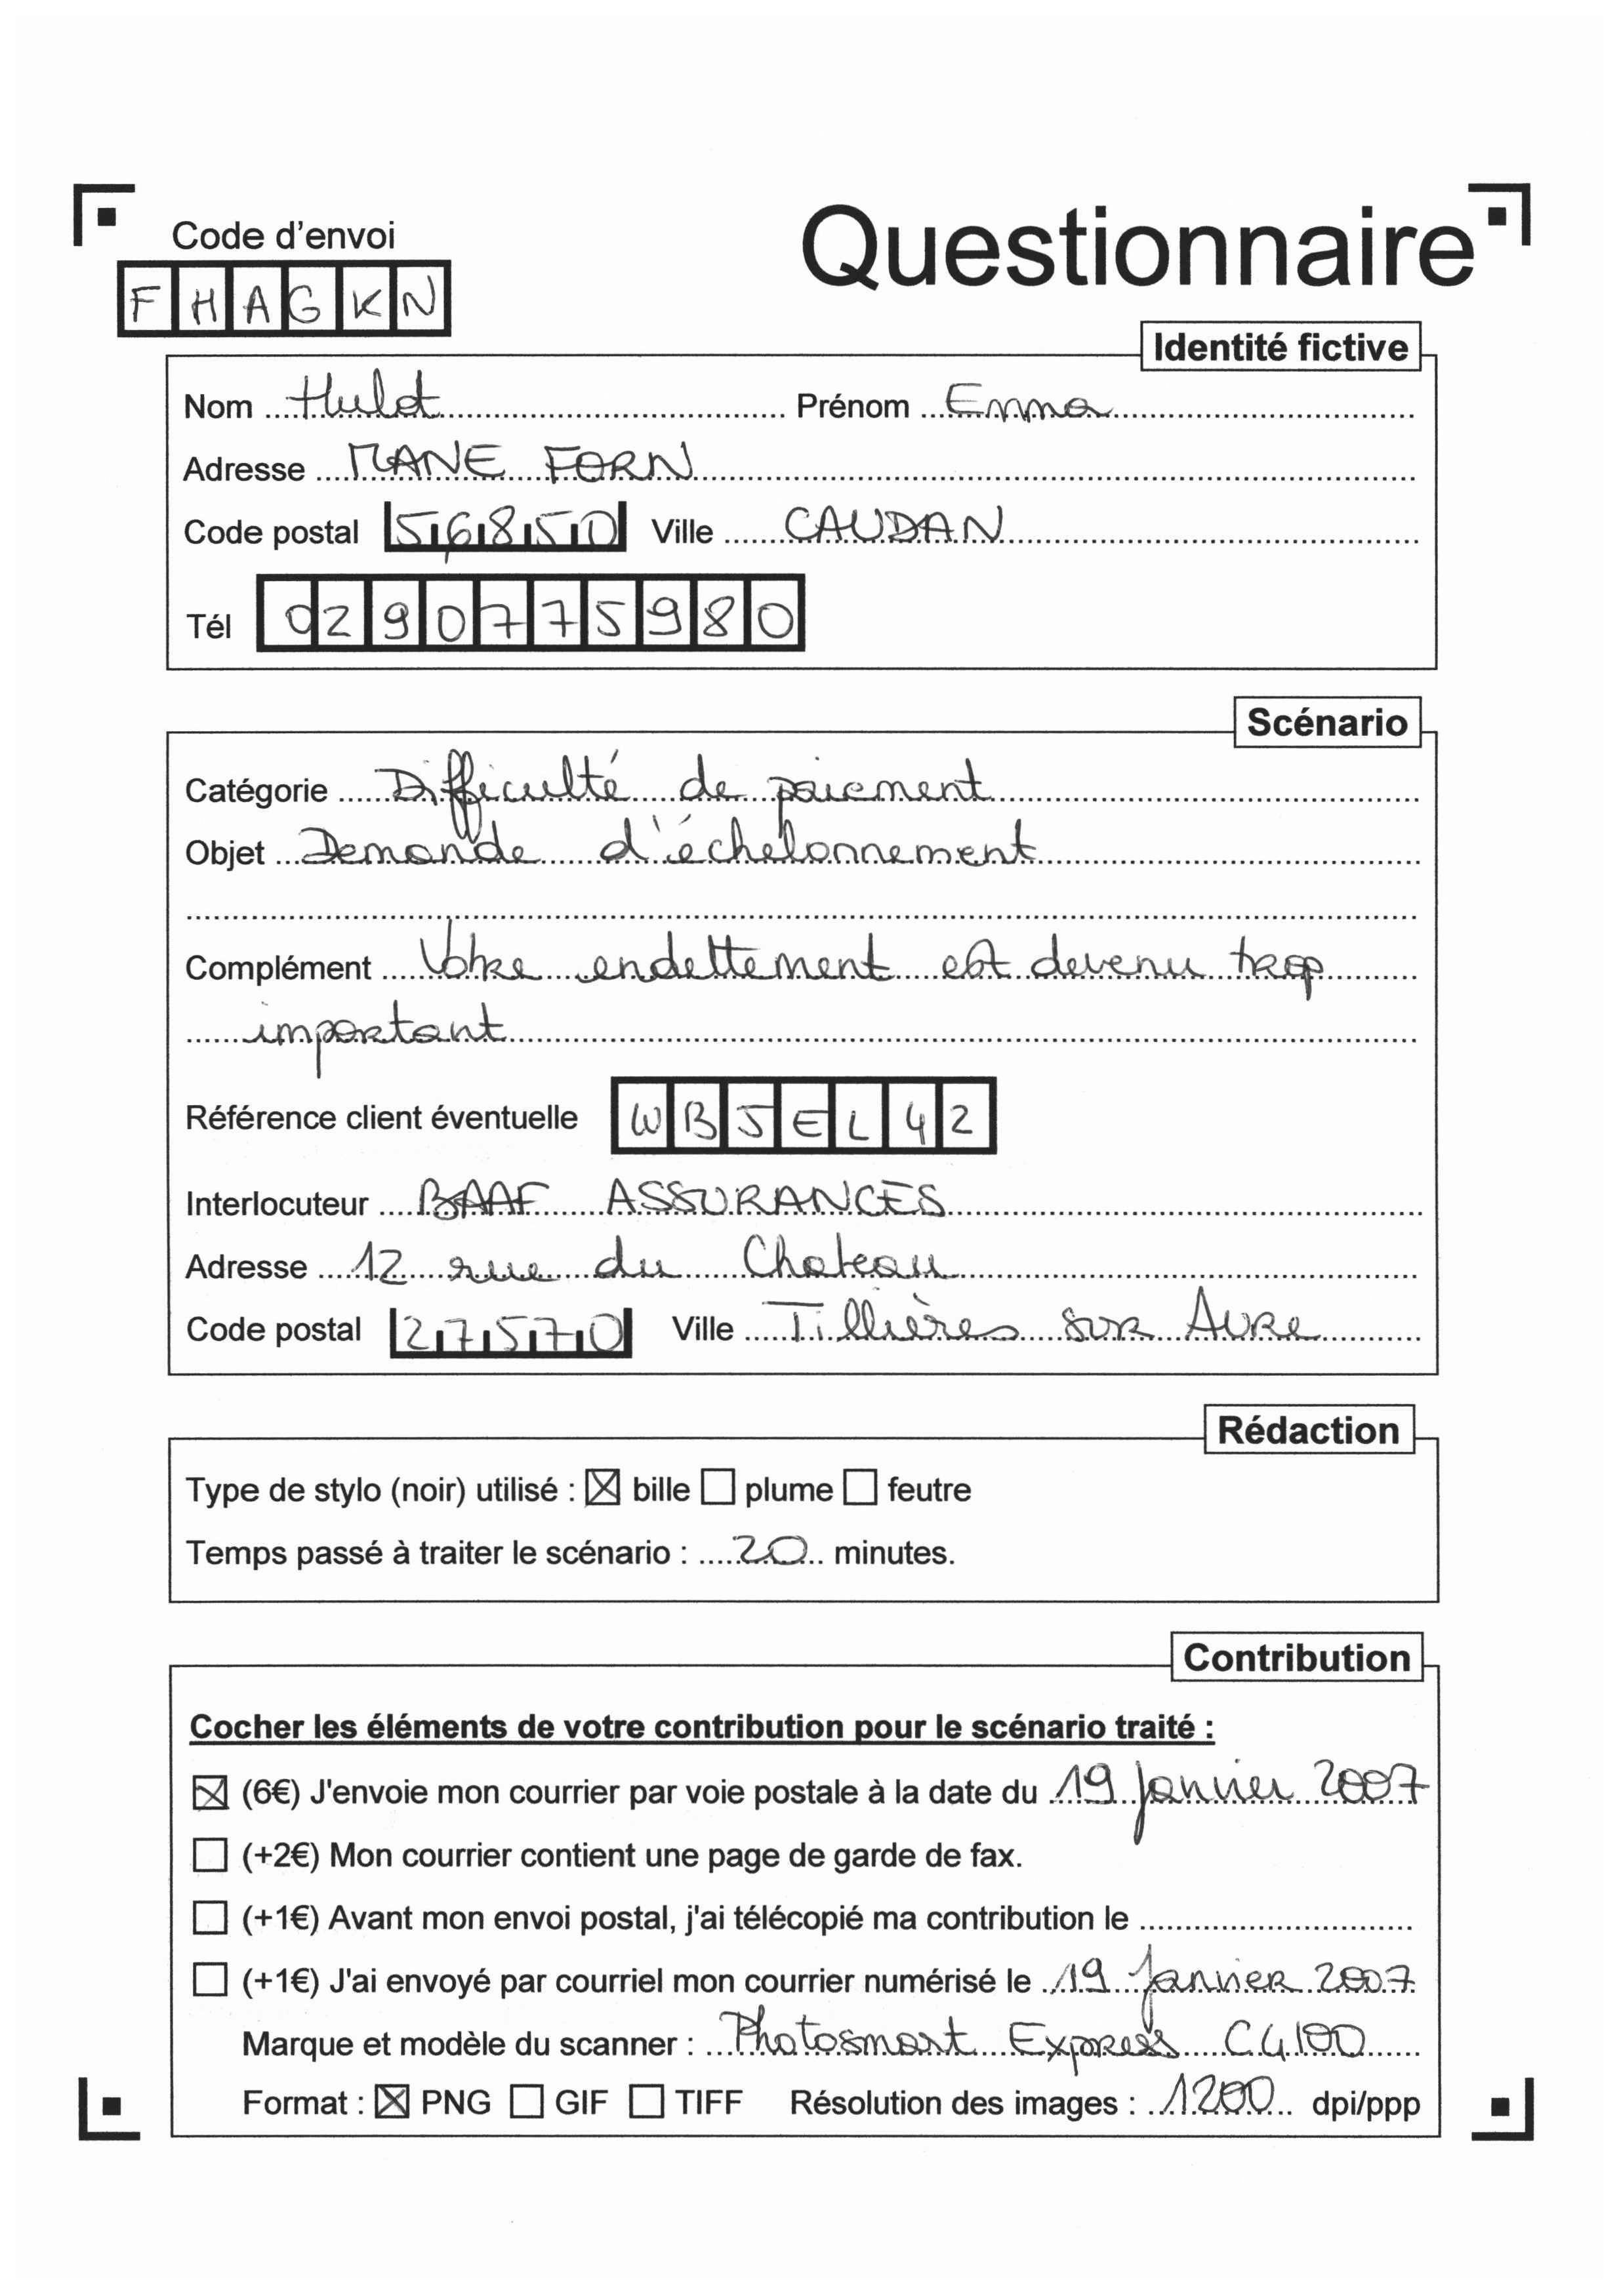 Code d'envoi
Questionnaire
F H A G K N
Identité fictive
Nom Huld Prénom Emma
Adresse MANE FORN
Code postal 56850 Ville CAUDAN
Tél 0290775980
Scénario
Catégorie Difficulté de paiement
Objet Demande d'échelonnement
Complément Votre endettement est devenu trop
important
Référence client éventuelle W B J E L 4 2
Interlocuteur BAAF ASSURANCES
Adresse 12 rue du Chateau
Code postal 27570 Ville Tillières sur Avre
Rédaction
Type de stylo (noir) utilisé : ☒ bille ☐ plume ☐ feutre
Temps passé à traiter le scénario : 20 minutes.
Contribution
Cocher les éléments de votre contribution pour le scénario traité :
☒ (6€) J'envoie mon courrier par voie postale à la date du 19 janvier 2007
☐ (+2€) Mon courrier contient une page de garde de fax.
☐ (+1€) Avant mon envoi postal, j'ai télécopié ma contribution le
☐ (+1€) J'ai envoyé par courriel mon courrier numérisé le 19 janvier 2007
Marque et modèle du scanner : Photosmart Express C4100
Format : ☒ PNG ☐ GIF ☐ TIFF Résolution des images : 1200 dpi/ppp